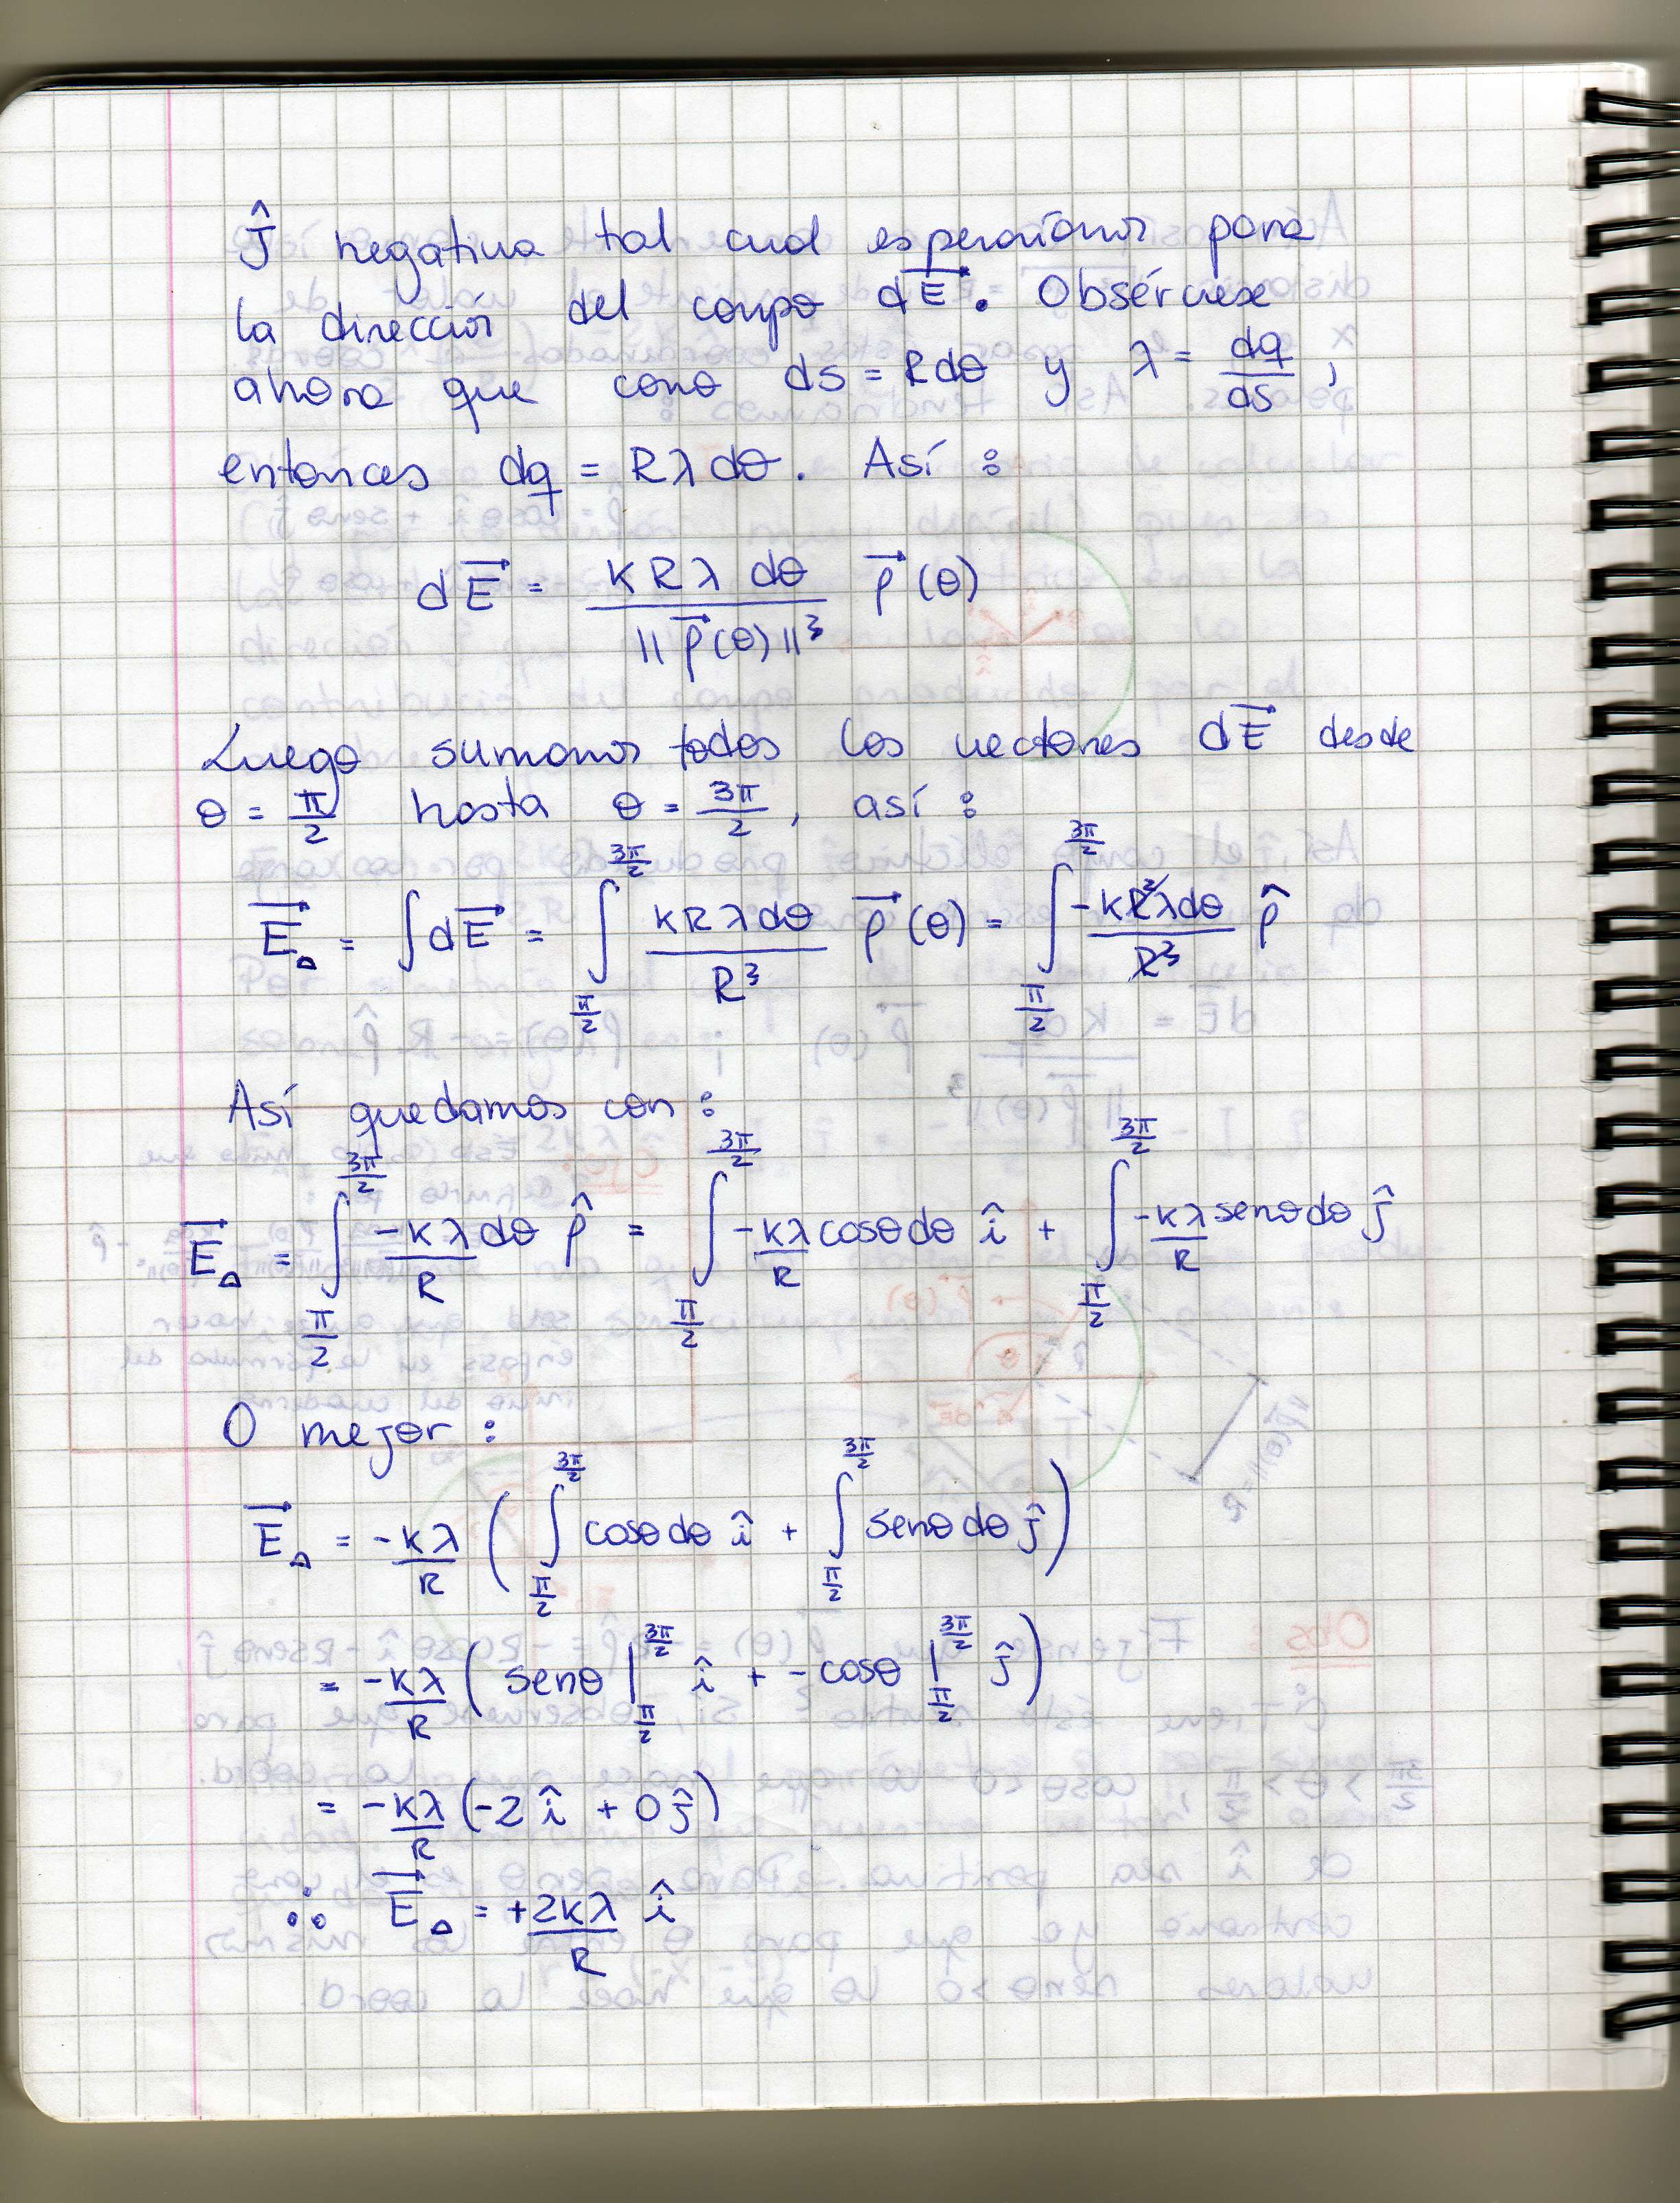 ĵ negativa tal cual esperaríamos para
la dirección del campo dE⃗. Obsérvese
ahora que como ds = Rdθ y λ = dq/ds,
entonces dq = Rλdθ. Así:
dE⃗ = KRλ dθ / ||ρ⃗(θ)||³ ρ⃗(θ)
Luego sumamos todos los vectores dE⃗ desde
θ = π/2 hasta θ = 3π/2, así:
E⃗△ = ∫dE⃗ = ∫_{π/2}^{3π/2} KRλdθ/R³ ρ⃗(θ) = ∫_{π/2}^{3π/2} -KR²λdθ/R³ ρ̂
Así quedamos con:
E⃗△ = ∫_{π/2}^{3π/2} -Kλdθ/R ρ̂ = ∫_{π/2}^{3π/2} -Kλ/R cosθdθ î + ∫_{π/2}^{3π/2} -Kλ/R senθdθ ĵ
O mejor:
E⃗△ = -Kλ/R ( ∫_{π/2}^{3π/2} cosθdθ î + ∫_{π/2}^{3π/2} senθdθ ĵ )
= -Kλ/R ( senθ |_{π/2}^{3π/2} î + -cosθ |_{π/2}^{3π/2} ĵ )
= -Kλ/R (-2 î + 0 ĵ)
∴ E⃗△ = +2Kλ/R î